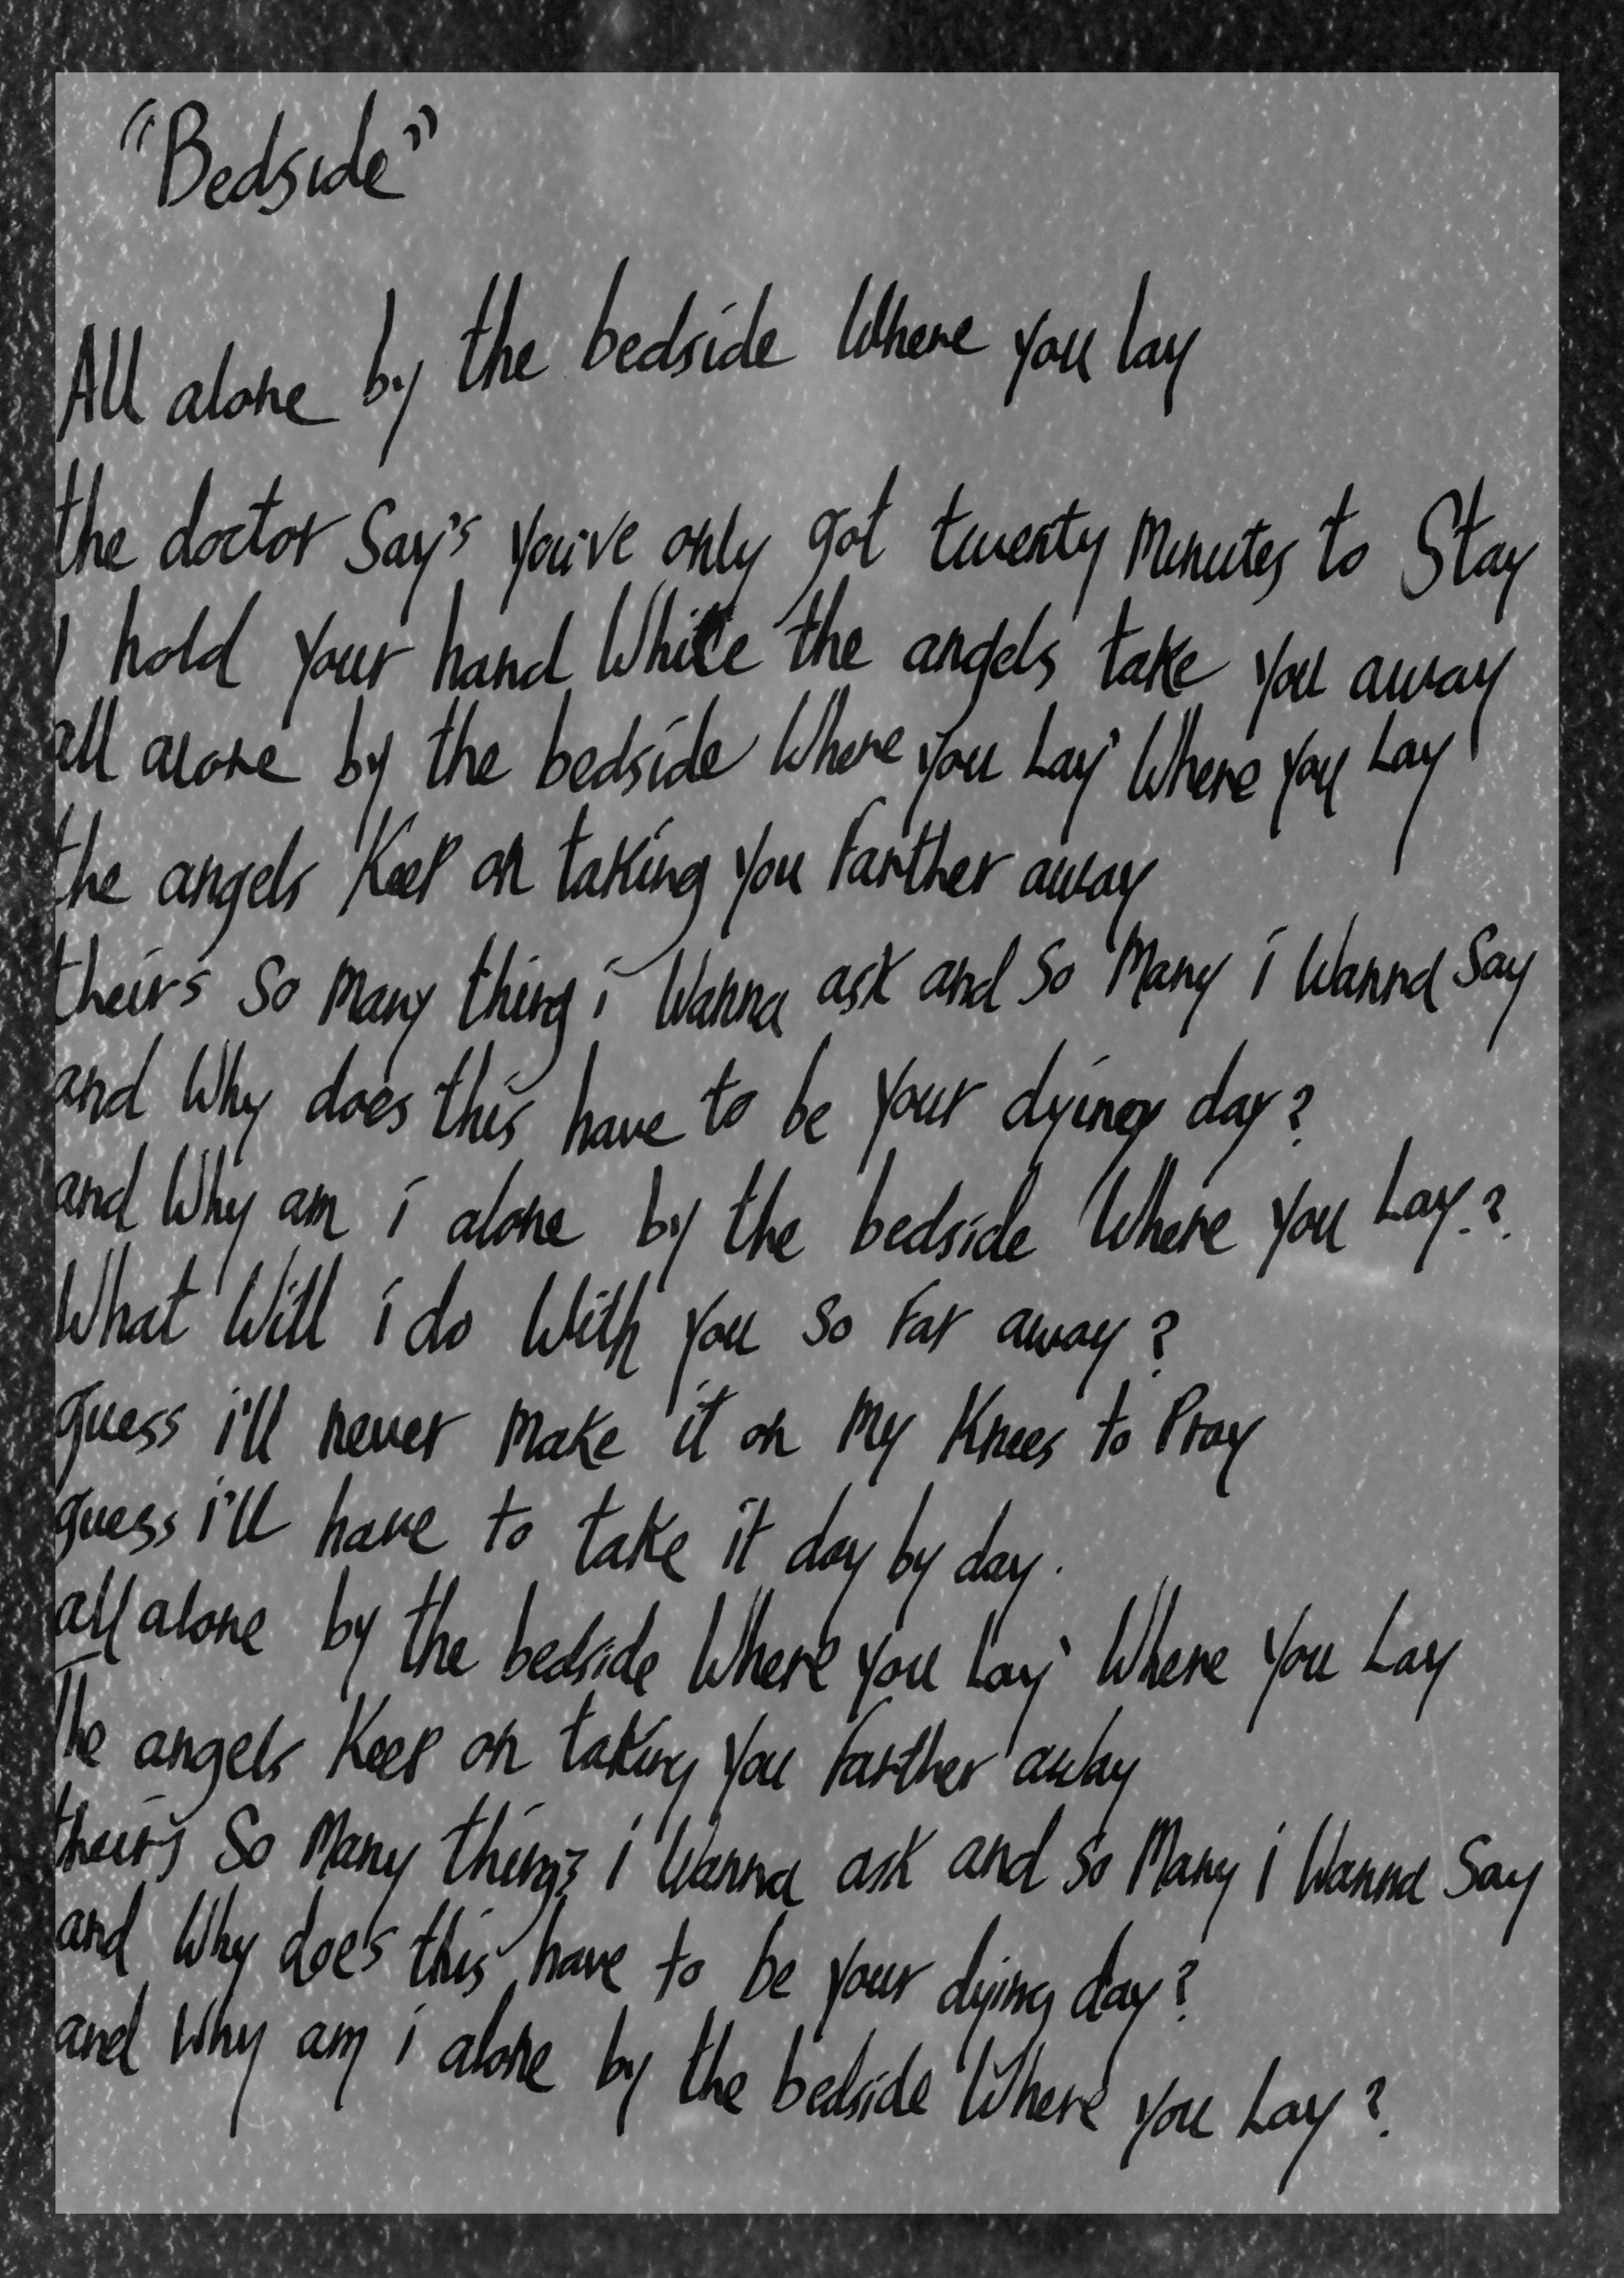 "Bedside"
All alone by the bedside Where you lay
the doctor Say's you've only got twenty Minutes to Stay
I hold your hand While the angels take you away
all alone by the bedside Where you Lay' Where you Lay
the angels Keep on taking you Farther away
theirs so many thing i Wanna ask and so Many i Wanna Say
and Why does this have to be your dying day?
and Why am i alone by the bedside Where you Lay?
What Will i do With you so Far away?
guess i'll never Make it on My Knees to Pray
guess i'll have to take it day by day.
all alone by the bedside Where you Lay' Where you Lay
The angels Keep on taking you Farther away
their's So Many things i Wanna ask and so Many i Wanna Say
and Why does this have to be your dying day?
and Why am i alone by the bedside Where you Lay?